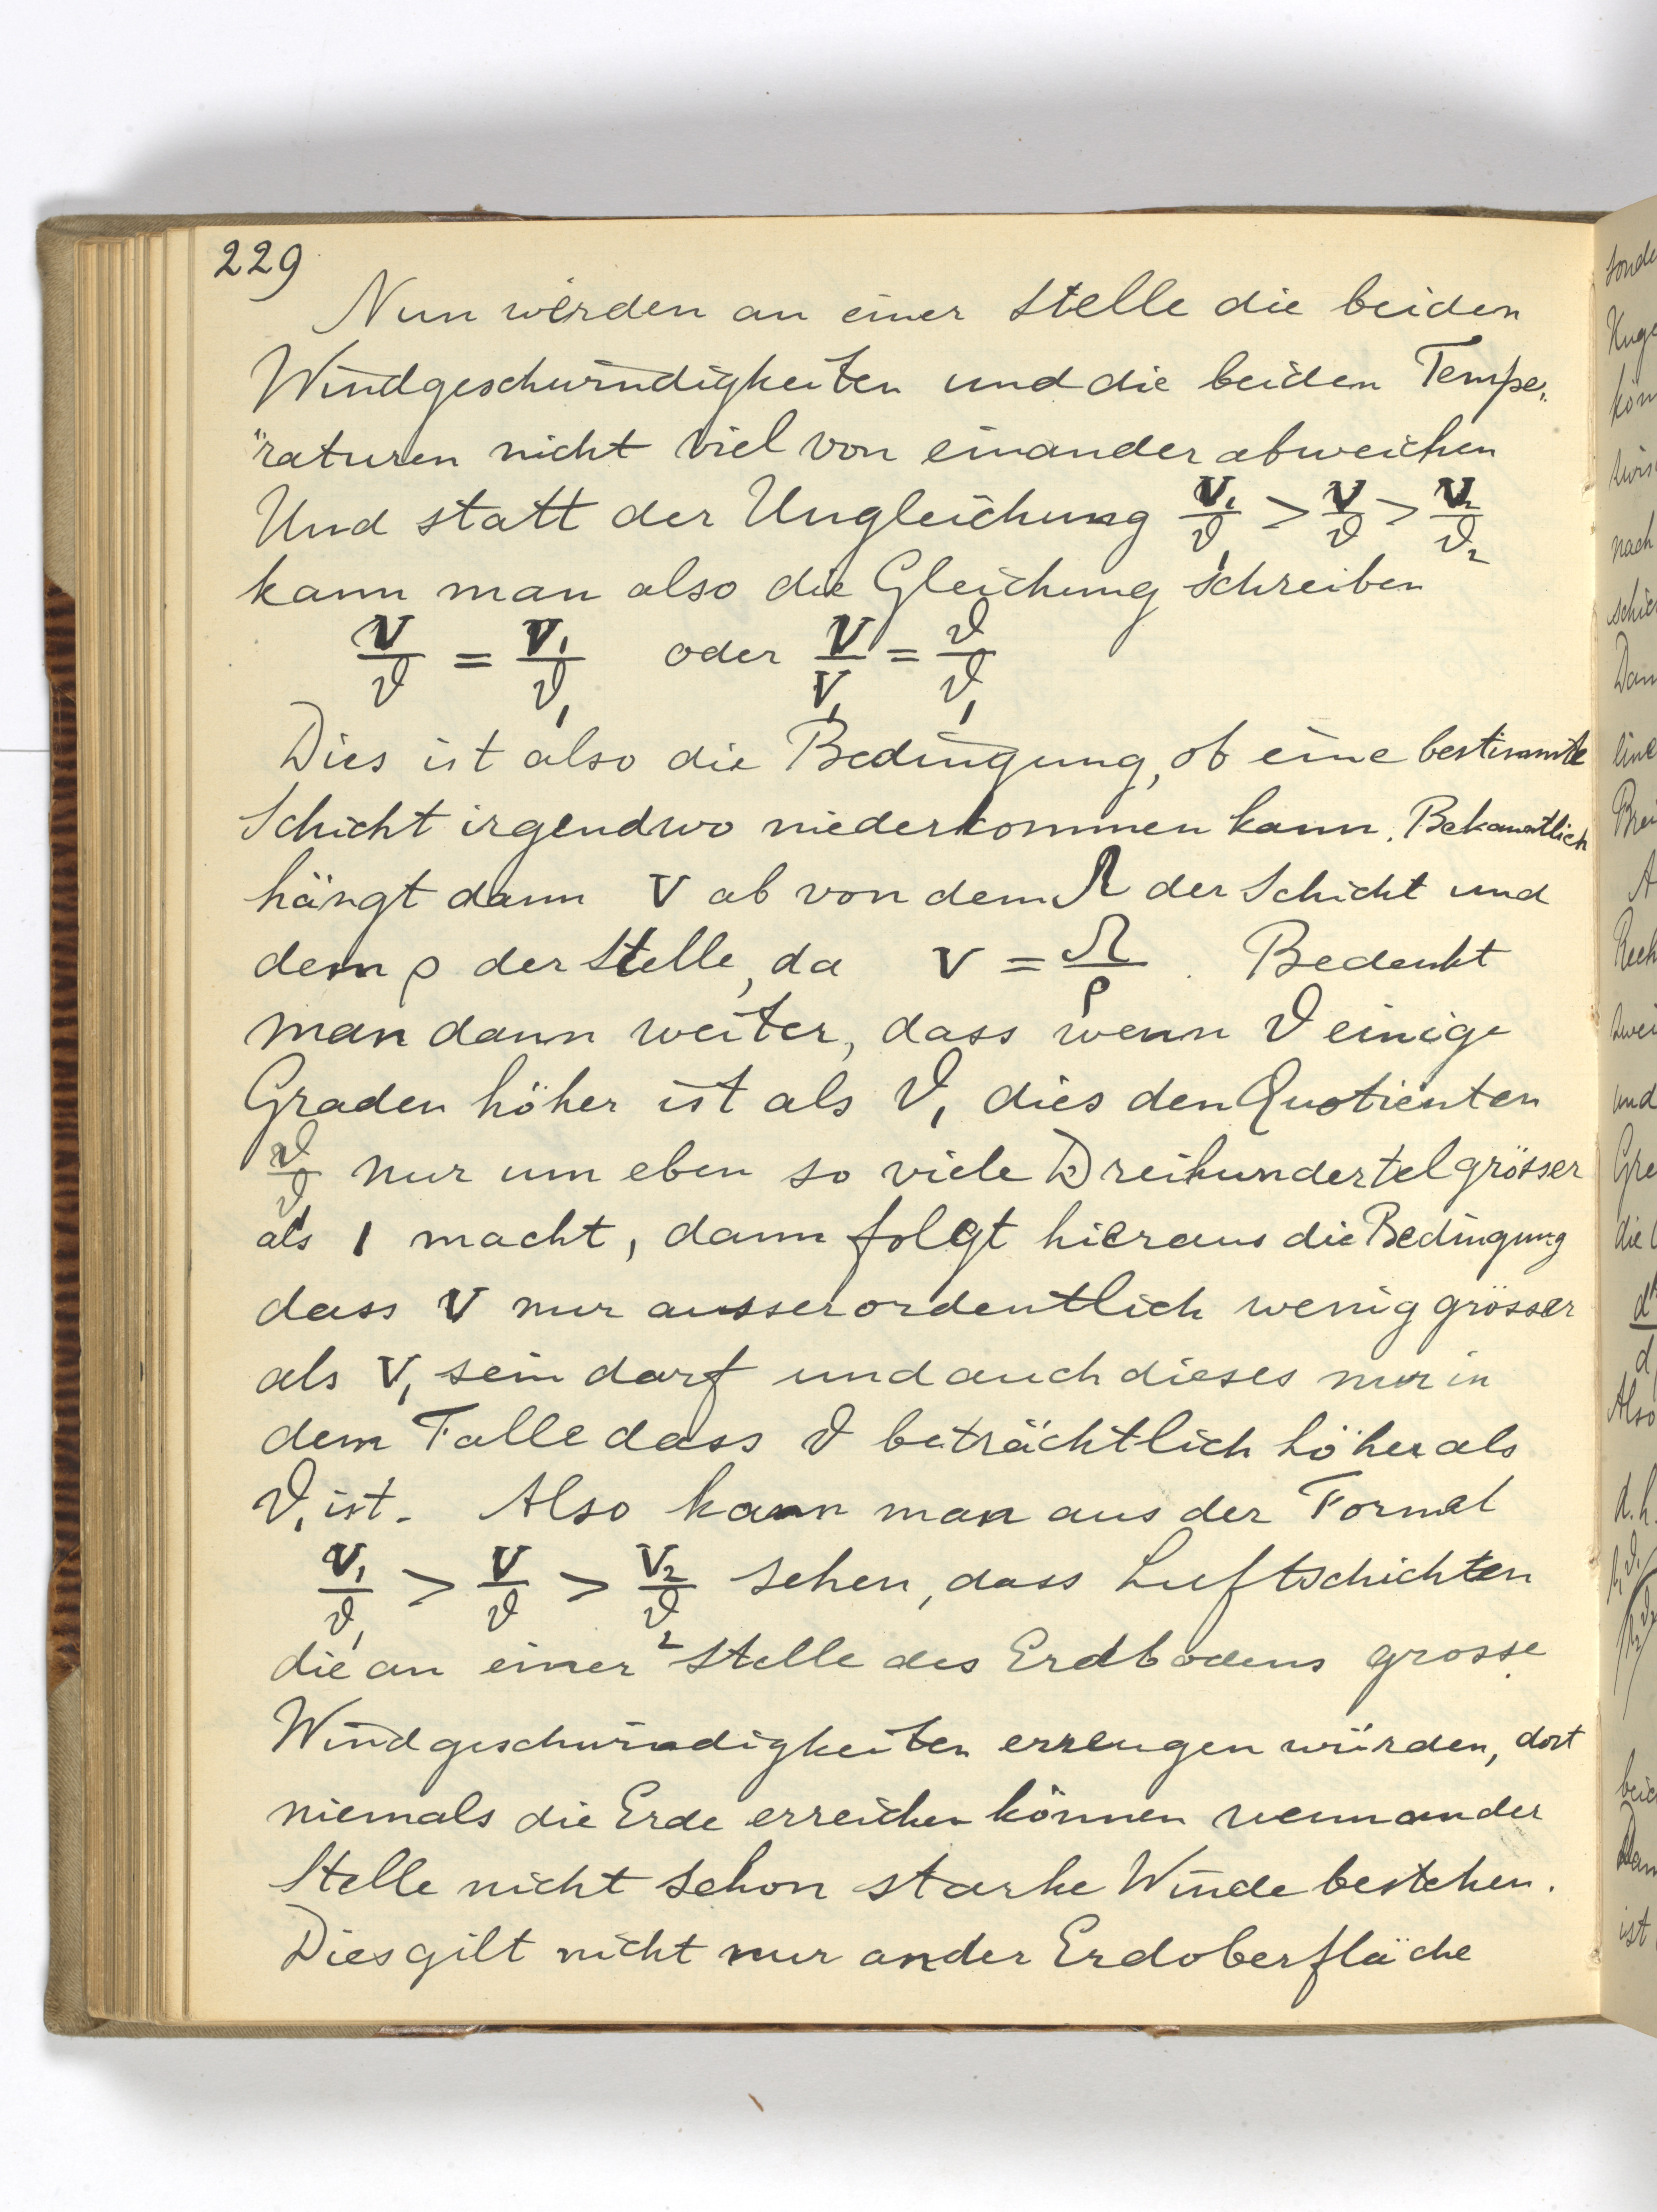 229
Nun werden an einer Stelle die beiden
Windgeschwindigkeiten und die beiden Tempe„
"raturen nicht viel von einander abweichen
Und statt der Ungleichung V₁/ϑ₁ > V/ϑ > V₂/ϑ₂
kann man also die Gleichung schreiben
V/ϑ = V₁/ϑ₁ oder V/V₁ = ϑ/ϑ₁
Dies ist also die Bedingung, ob eine bestimmte
Schicht irgendwo niederkommen kann. Bekanntlich
hängt dann V ab von dem Ω der Schicht und
dem ρ der Stelle, da V = Ω/ρ. Bedenkt
man dann weiter, dass wenn ϑ einige
Graden höher ist als ϑ₁ dies den Quotienten
ϑ/ϑ₁ nur um eben so viele Dreihundertel grösser
als 1 macht, dann folgt hieraus die Bedingung
dass V nur ausserordentlich wenig grösser
als V₁ sein darf und auch dieses nur in
dem Falle dass ϑ beträchtlich höher als
ϑ₁ ist. Also kann man aus der Formel
V₁/ϑ₁ > V/ϑ > V₂/ϑ₂ sehen, dass Luftschichten
die an einer Stelle des Erdbodens grosse
Windgeschwindigkeiten erzeugen würden, dort
niemals die Erde erreichen können wenn an der
Stelle nicht schon starke Winde bestehen.
Dies gilt nicht nur an der Erdoberfläche